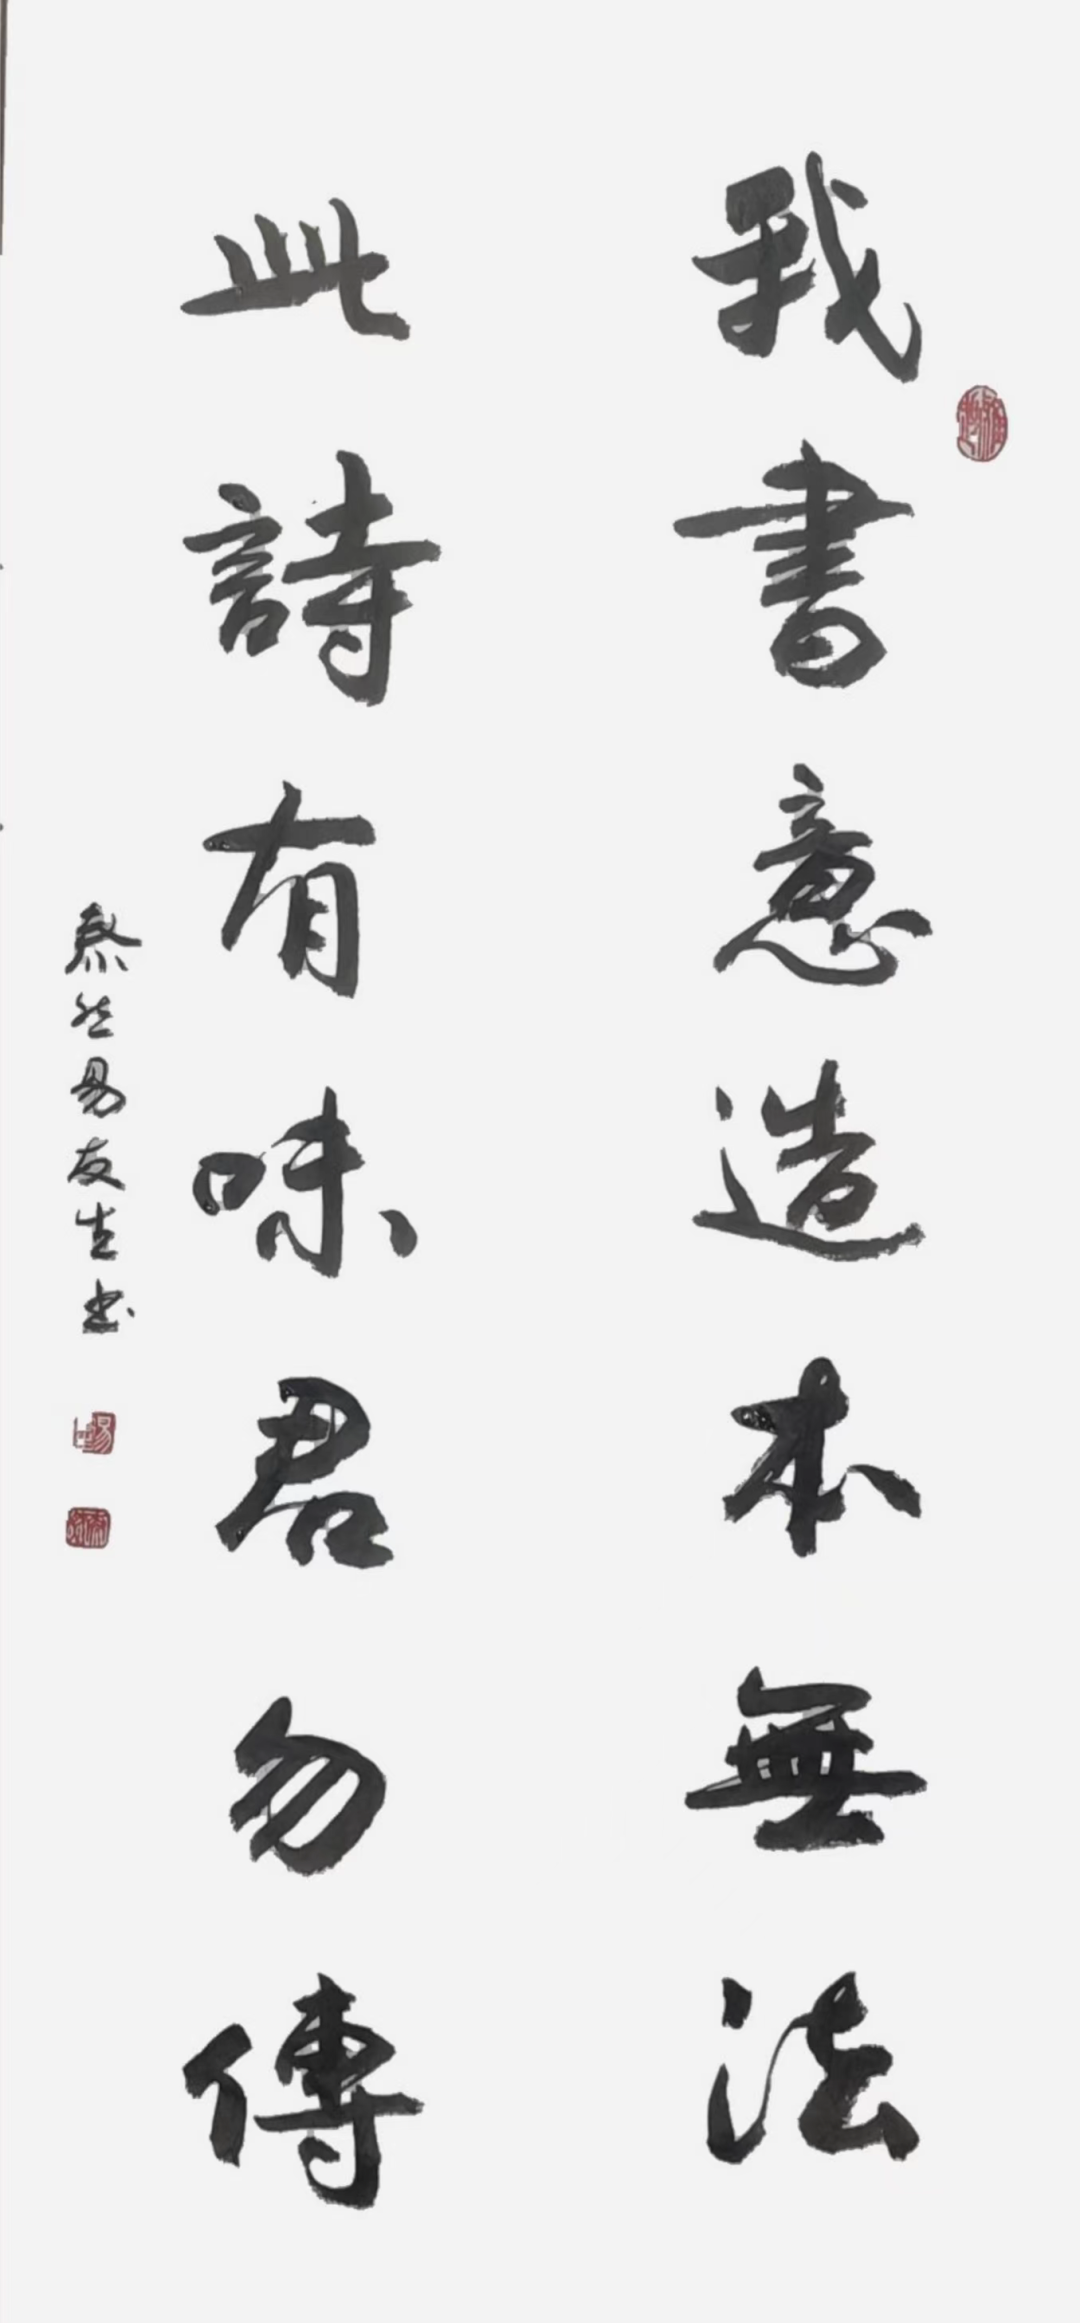 我書意造本無法
此詩有味君勿傳
易友生书